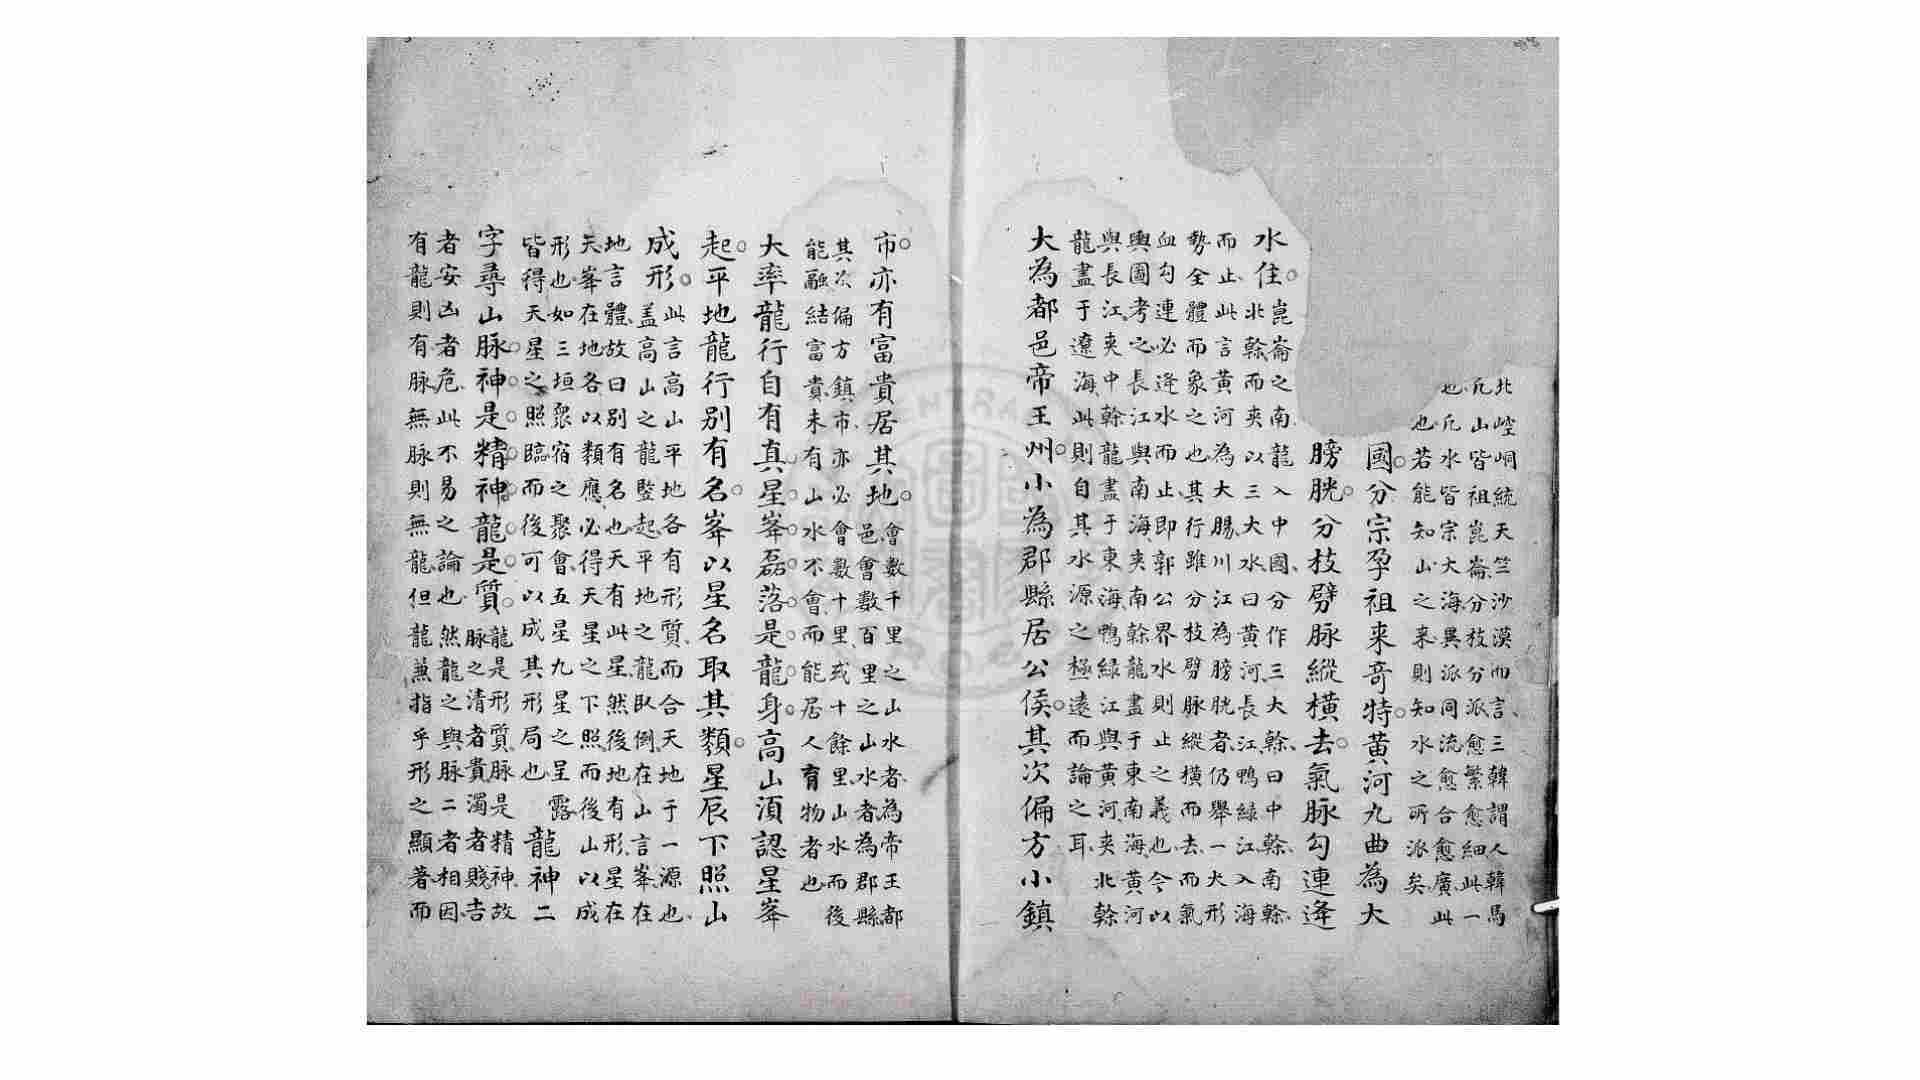 北崆峒統天竺沙漠而言三韓謂人韓馬
凡山皆祖崑崙分枝分派愈繁愈細此一
也凡水皆宗大海異派同流愈合愈廣此
也若能知山之来則知水之所派矣
國分宗孕祖来奇特黄河九曲為大
膀胱分枝劈脉縱橫去氣脉勾連逢
水住
崑崙之南龍入中國分作三大榦曰中榦南榦
北榦而夾以三大水曰黄河長江鴨緑江入海
而止此言黄河為大腸川江為膀胱者仍舉一大形
勢全體而象之也其行雖分枝劈脉縱橫而去而氣
血勾連必逢水而止即郭公界水則止之義也今以
輿圖考之長江與南海夾南榦龍盡于東南海黄河
與長江夾中榦龍盡于東海鴨緑江與黄河夾北榦
龍盡于遼海此則自其水源之極遠而論之耳
大為都邑帝王州小為郡縣居公侯其次偏方小鎮
市亦有富貴居其地
會數千里之山水者為帝王都
邑會數百里之山水者為郡縣
其次偏方鎮市亦必會數十里或十餘里山水而後
能融結富貴未有山水不會而能居人育物者也
大率龍行自有真星峯磊落是龍身高山須認星峯
起平地龍行別有名峯以星名取其類星辰下照山
成形
此言高山平地各有形質而合天地于一源也
盖高山之龍竪起平地之龍臥倒在山言峯在
地言體故曰別有名也天有此星然後地有形星在
天峯在地各以類應必得天星之下照而後山以成
形也如三垣衆宿之聚會五星九星之呈露
皆得天星之照臨而後可以成其形局也
龍神二
字尋山脉神是精神龍是質
龍是形質脉是精神故
脉之清者貴濁者賤吉
者安凶者危此不易之論也然龍之與脉二者相因
有龍則有脉無脉則無龍但龍兼指乎形之顯著而